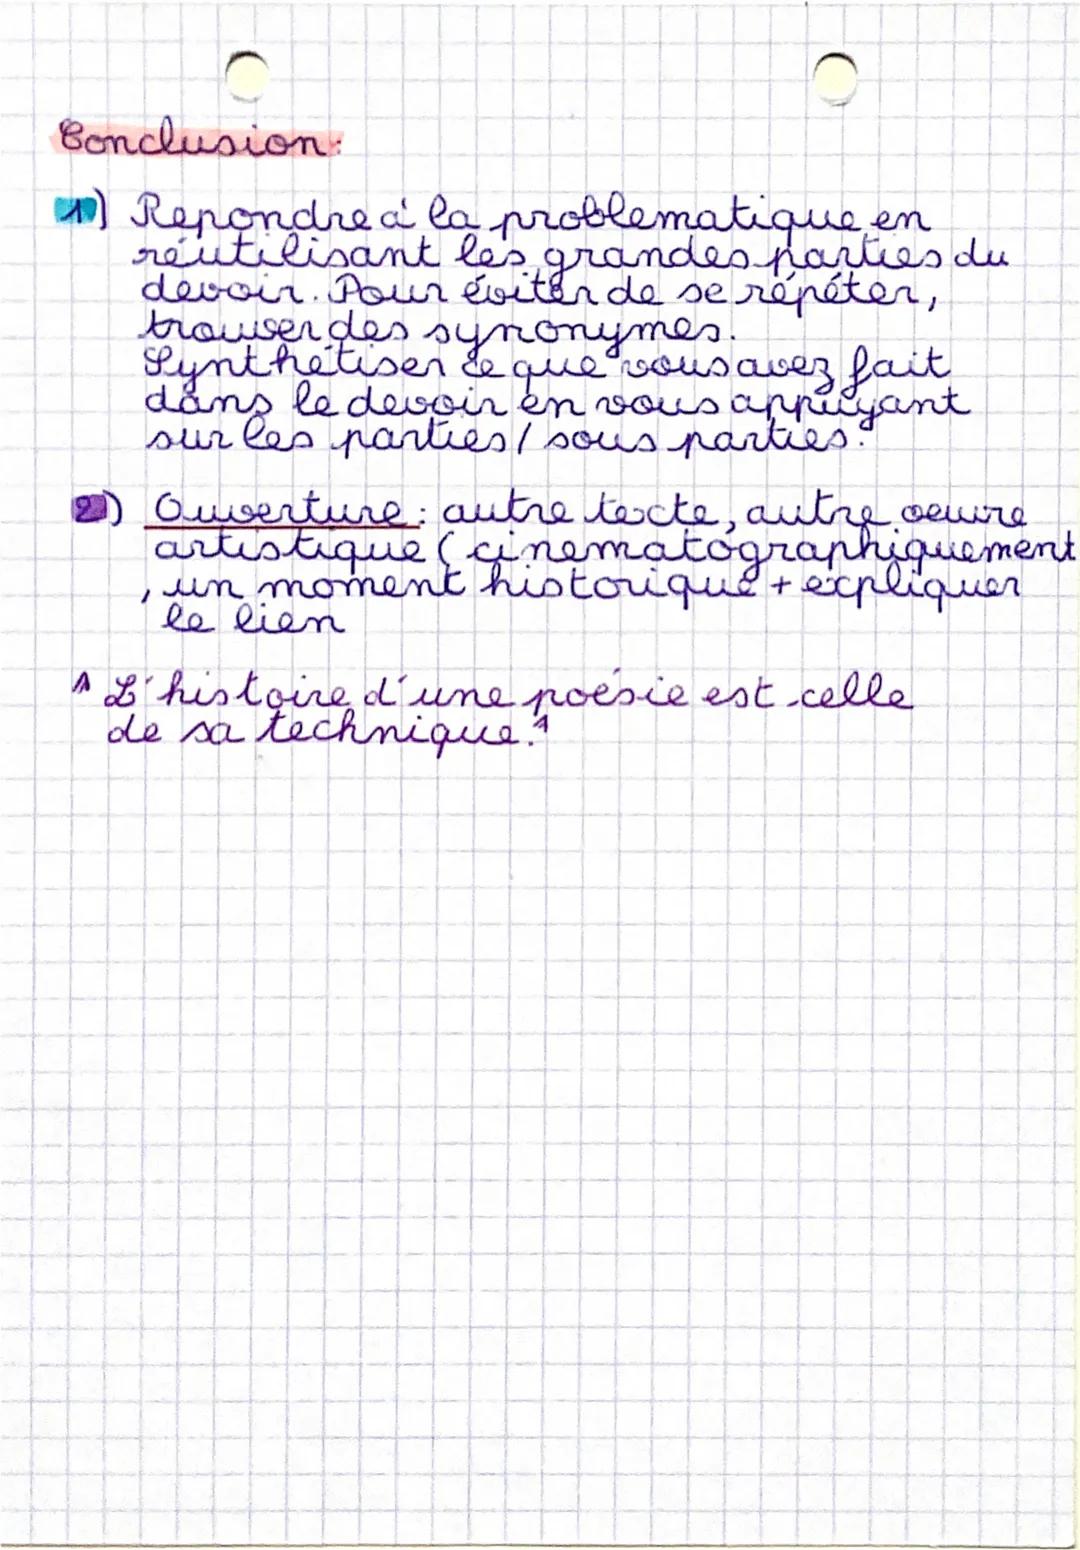 Conclusion:
1) Repondre à la problematique en
réutilisant les grandes parties du
devoir. Pour éviter de se répéter,
trouver des synonymes.
Synthétiser ce que vous avez fait
dans le devoir en vous appuyant
sur les parties / sous parties.
2) Ouverture : autre texte, autre oeuvre
artistique ( cinematographiquement
, un moment historique + expliquer
le lien
" L'histoire d'une poésie est celle
de sa technique."